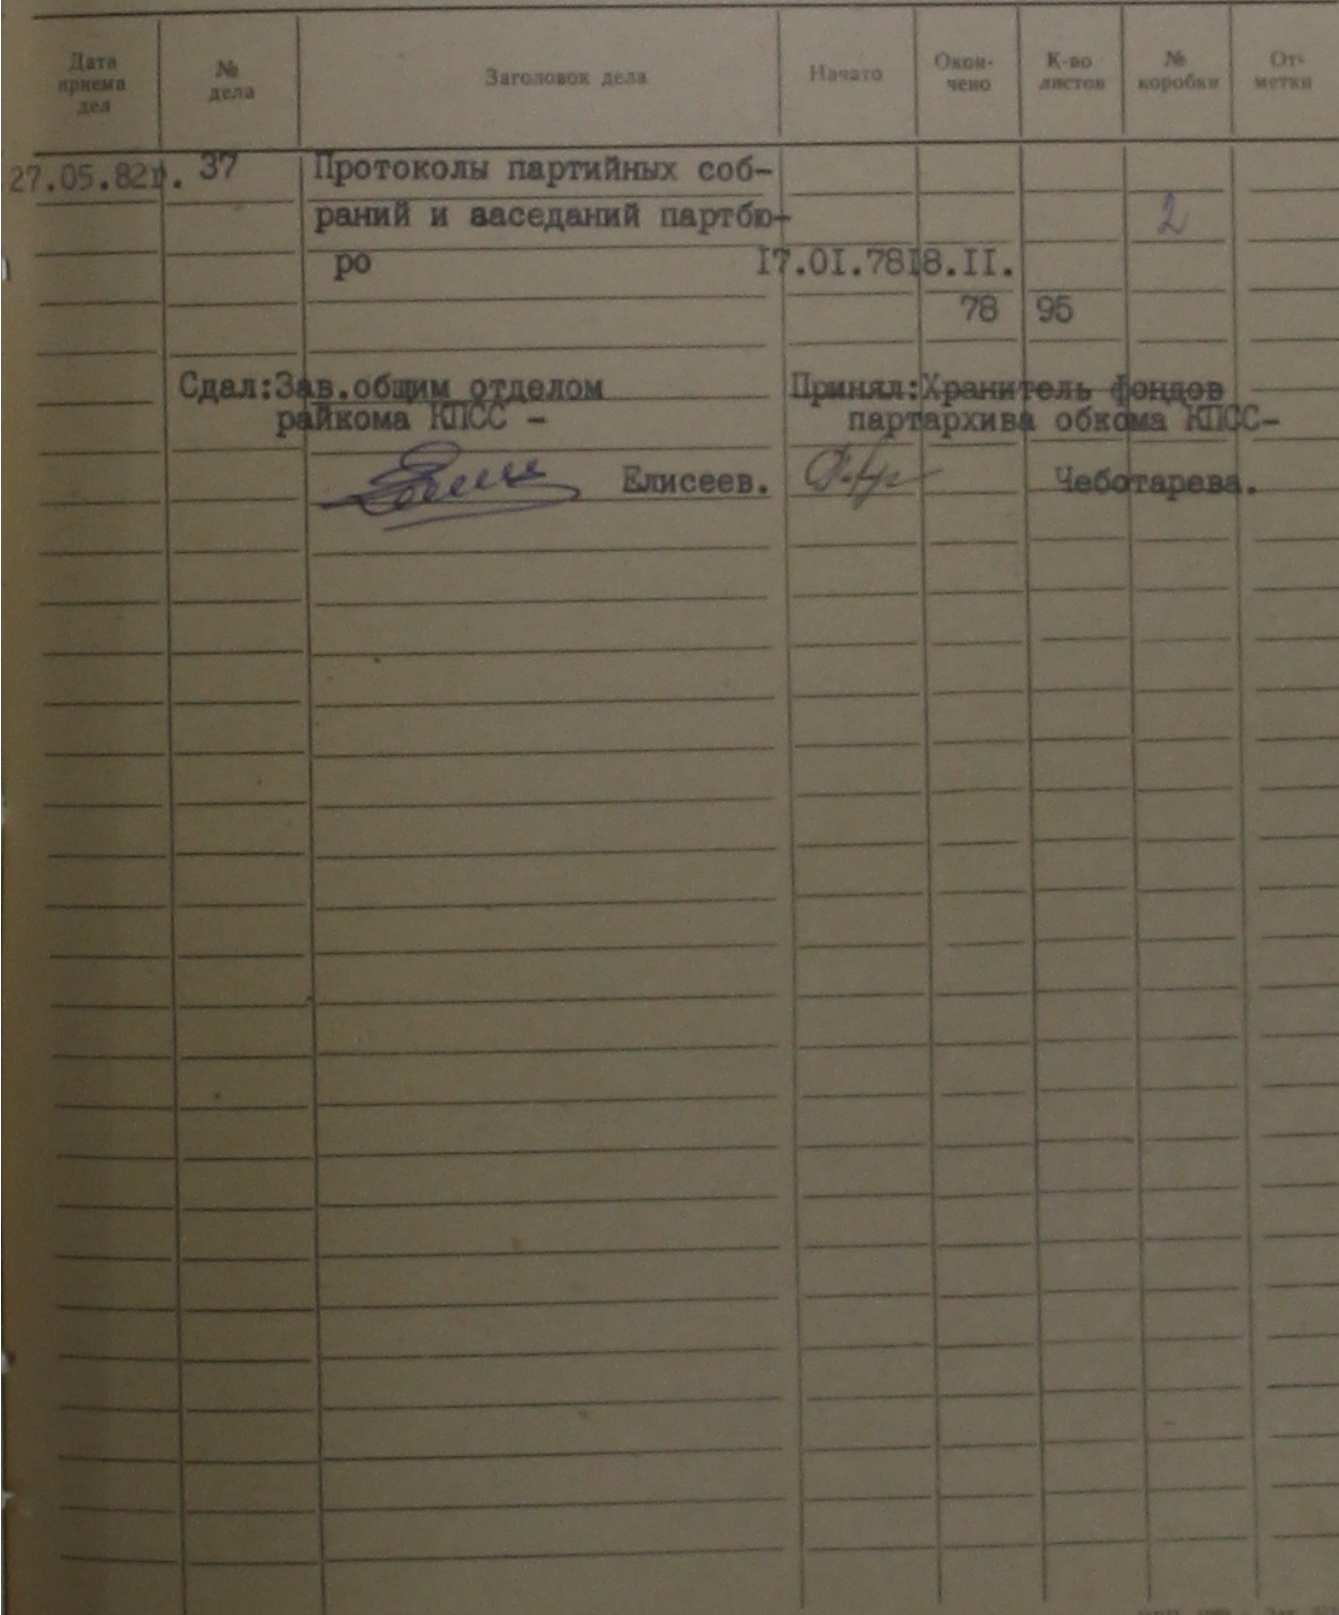 Дата приема дел № дела Заголовок дела Начато Окон- чено К-во листов № коробки От- метки
27.05.82г. 37 Протоколы партийных соб-
раний и заседаний партбю- 2
ро I7.0I.78 I8.II.
78 95
Сдал:Зав.общим отделом Принял:Хранитель фондов
райкома КПСС - партархива обкома КПСС-
Елисеев. Чеботарева.